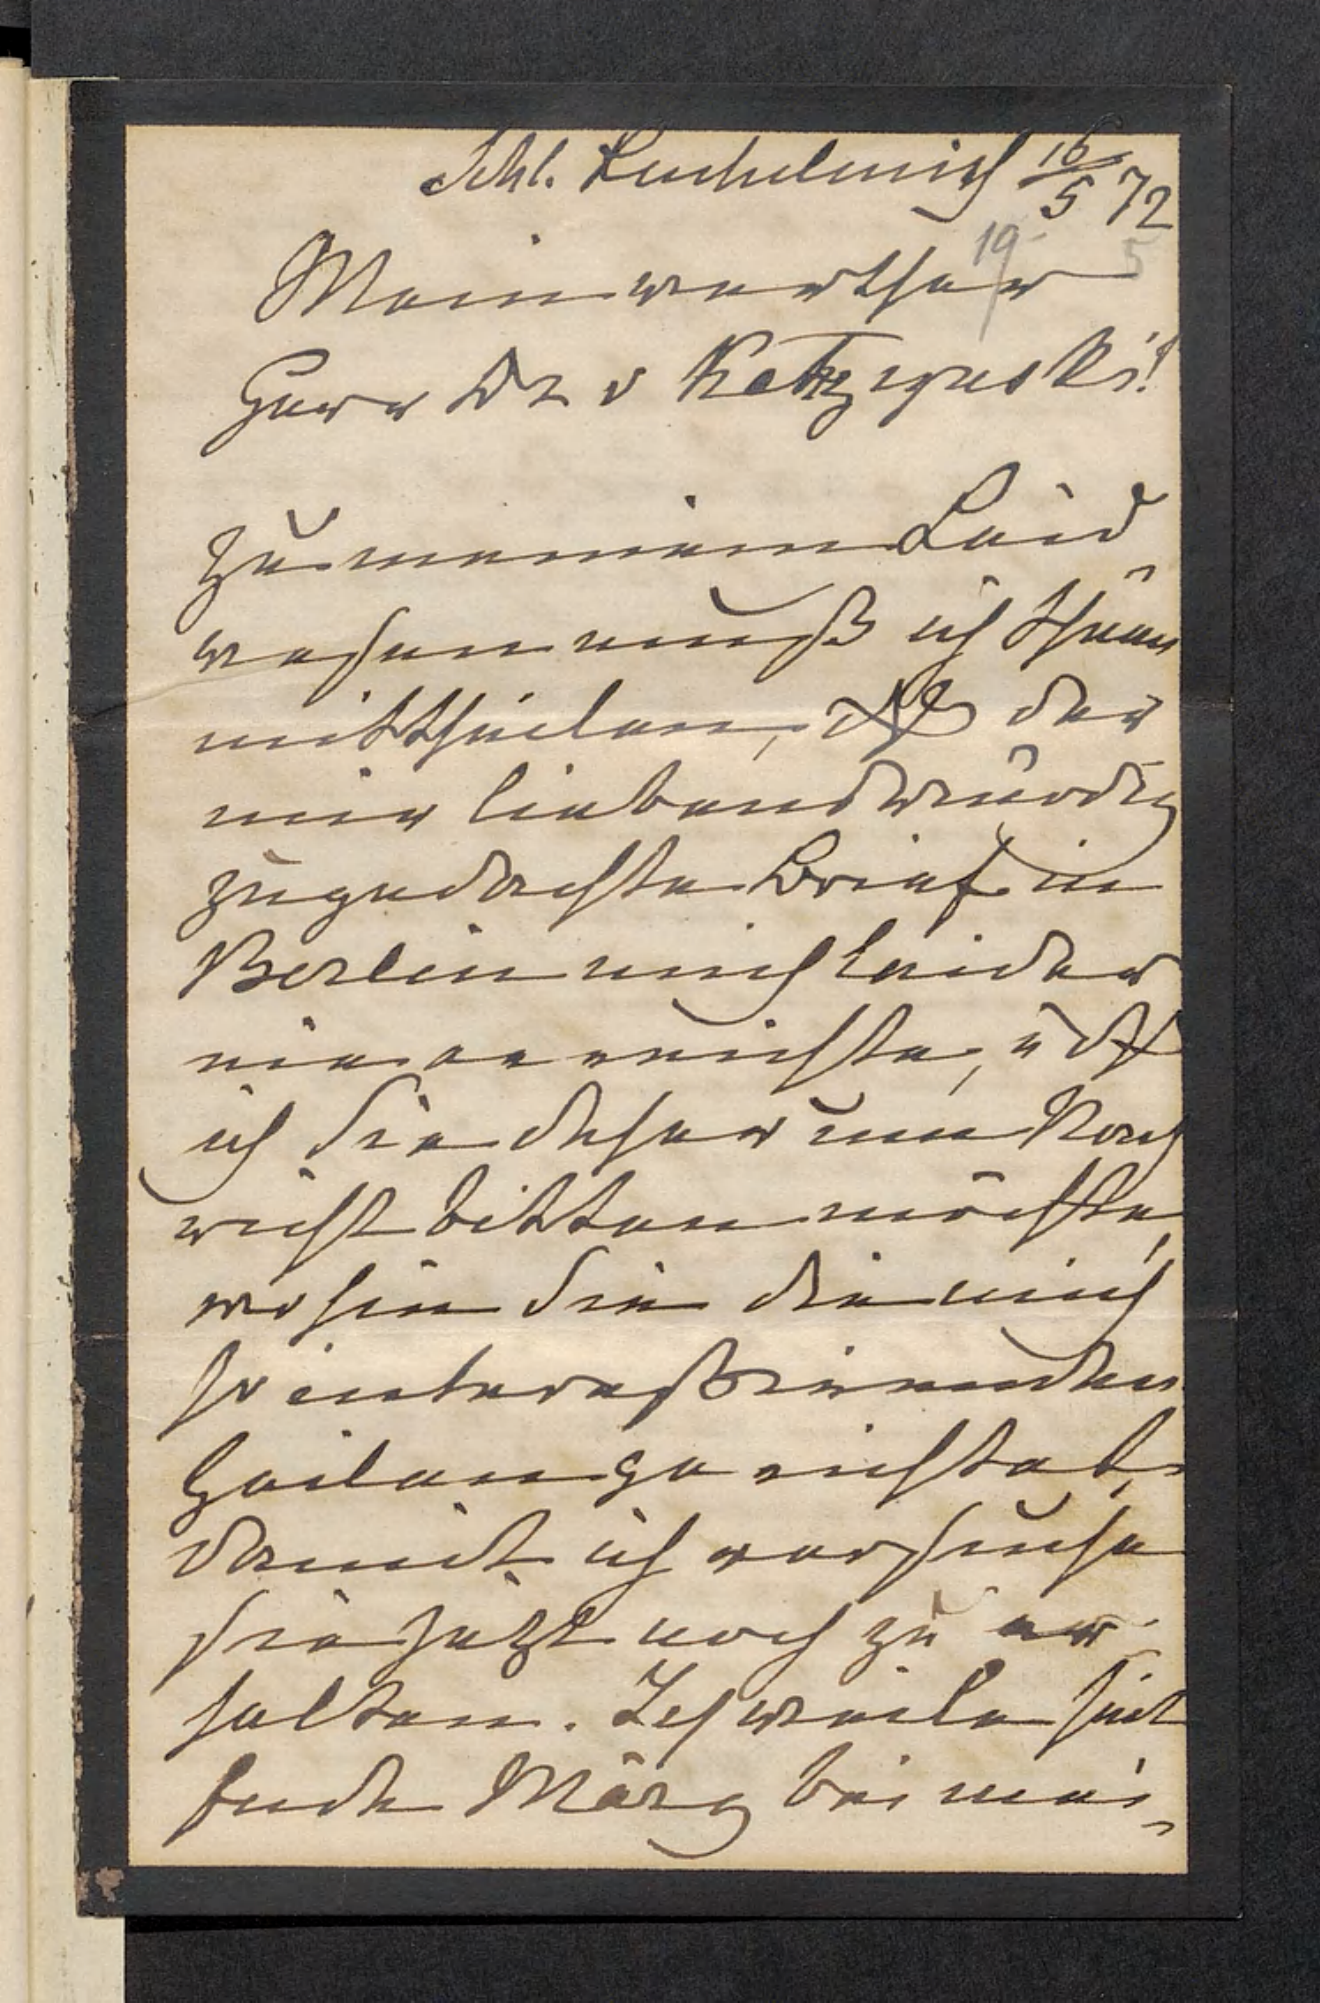 Schl. Kuchelmiß 16/5 72
19 5
Mein werther
Herr Dr v Kętrzynski!
Zu meinem Leid-
wesen muß ich Ihnen
mittheilen, dß der
mir liebenswürdig
zugedachte Brief in
Berlin mich leider
nie erreichte, u dß
ich Sie daher um Nach
richt bitten möchte,
wohin Sie die mich
so interessirenden
Zeilen gerichtet,
damit ich versuche
sie jetzt noch zu er-
halten. Ich weile seit
Ende März bei mei-